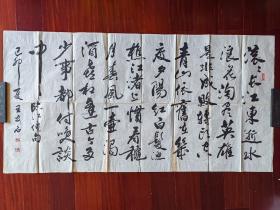 滚滚长江东逝水
浪花淘尽英雄
是非成败转头空
青山依旧在几
度夕阳红白发渔
樵江渚上惯看秋
月春风一壶浊
酒喜相逢古今多
少事都付笑谈
中 临江仙
己卯夏王